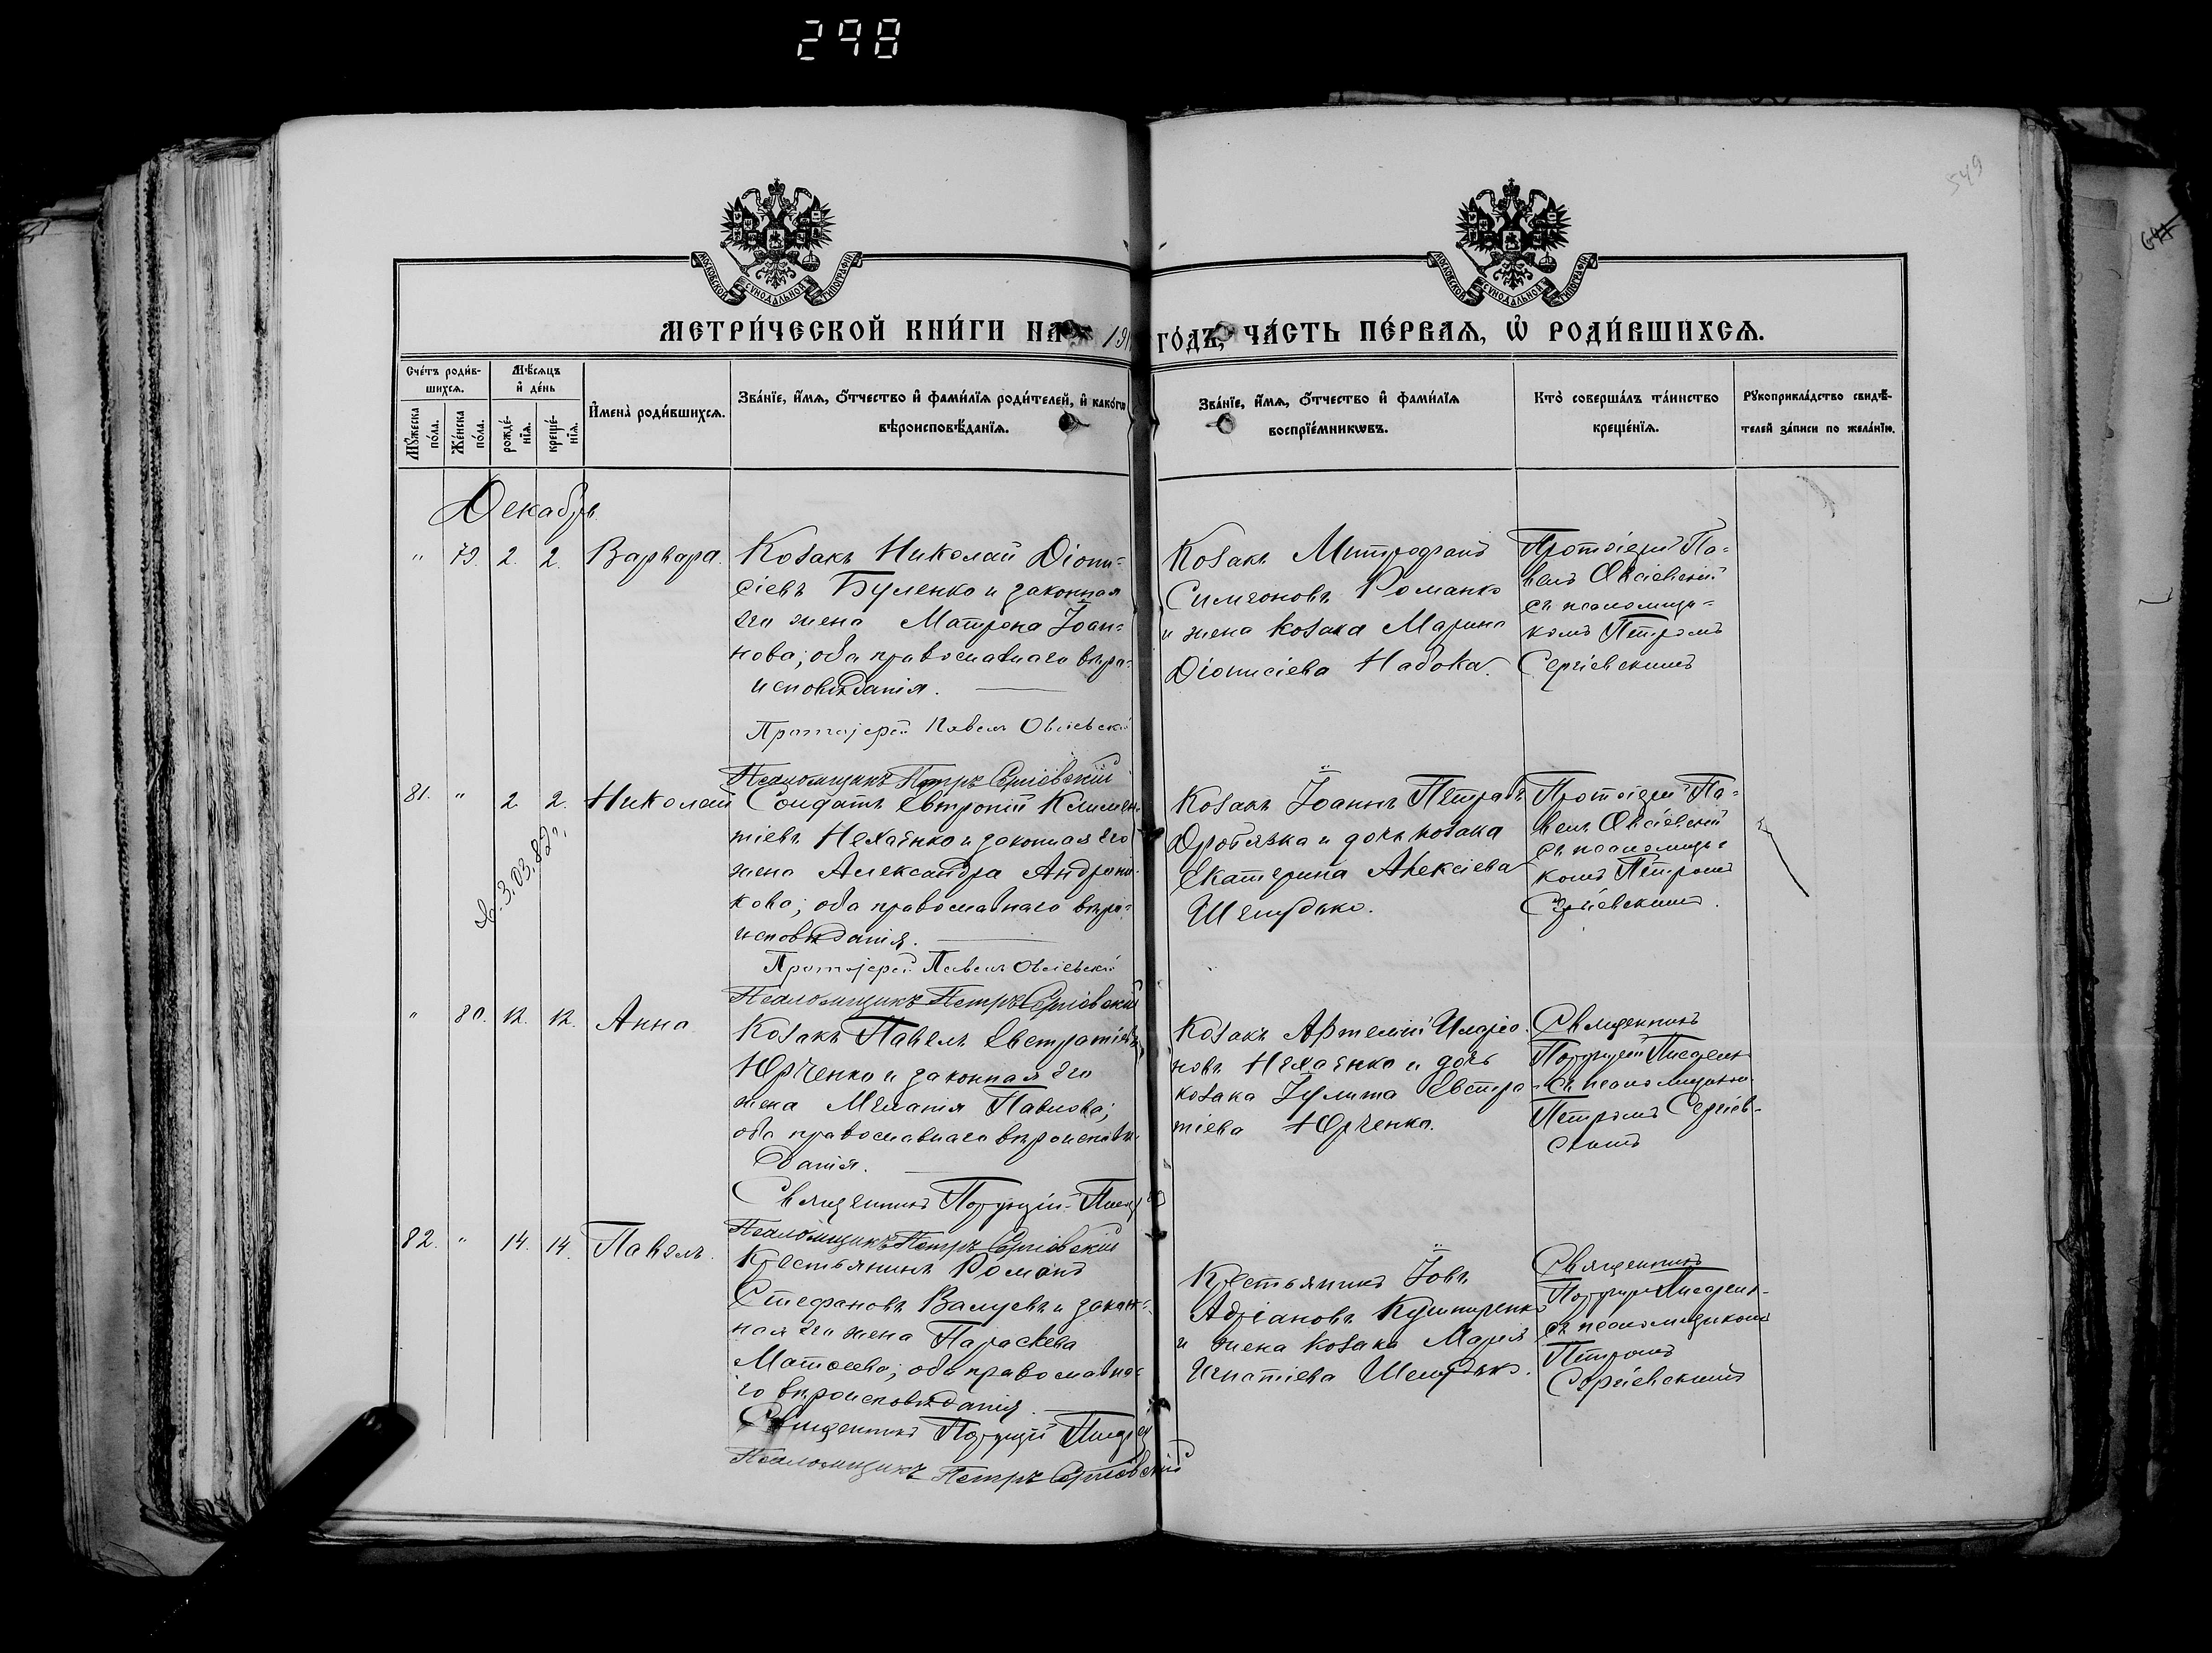 298
549
МОСКОВСКОЙ СѴНОДАЛЬНОЙ ТИПОГРАФІИ
МОСКОВСКОЙ СѴНОДАЛЬНОЙ ТИПОГРАФІИ
МЕТРИ́ЧЕСКОЙ КНИ́ГИ НА 191 ГО́ДЪ, ЧА́СТЬ ПЕ́РВАѦ, Ѡ҆ РОДИ́ВШИХСѦ.
Сче́тъ роди́в-
шихсѧ.
Мѣ́сѧцъ
и҆ де́нь
Мꙋ́жеска
по́ла.
Же́нска
по́ла.
рожде́-
нїѧ.
креще́-
нїѧ.
И҆мена̀ роди́вшихсѧ.
Зва́нїе, и҆́мѧ, ѻ҆́тчество и҆ фами́лїѧ роди́телей, и҆ како́гѡ
вѣроисповѣ́данїѧ.
Зва́нїе, и҆́мѧ, ѻ҆́тчество и҆ фами́лїѧ
воспрїе́мникѡвъ.
Кто̀ соверша́лъ та́инство
креще́нїѧ.
Рꙋкоприкла́дство свидѣ́-
телей за́писи по жела́нїю.
Декабрь
" 79. 2. 2. Варвара.
Козакъ Николай Діони-
сіевъ Буленко и законная
его жена Матрона Іоан-
нова; оба православнаго вѣро-
исповѣданія.
Протоіерей Павелъ Овсіевскій
Псаломщикъ Петръ Сергіевскій
Козакъ Митрофанъ
Симеоновъ Романко
и жена козака Марина
Діонисіева Набока.
Протоіерей Па-
велъ Овсіевскій
съ псаломщи-
комъ Петромъ
Сергіевскимъ
81. " 2. 2. Николай
3.03.82
Солдатъ Евтропій Климен-
тіевъ Нехаенко и законная его
жена Александра Андрони-
кова; оба православнаго вѣро-
исповѣданія.
Протоіерей Павелъ Овсіевскій
Псаломщикъ Петръ Сергіевскій
Козакъ Іоаннъ Петровъ
Дробязка и дочь козака
Екатерина Алексіева
Шемудько.
Протоіерей Па-
велъ Овсіевскій
съ псаломщи-
комъ Петромъ
Сергіевскимъ.
" 80. 12. 12. Анна
Козакъ Павелъ Евстратіевъ
Юрченко и законная его
жена Меланія Павлова;
оба православнаго вѣроисповѣ-
данія.
Священникъ Порфирій
Псаломщикъ Петръ Сергіевскій
Козакъ Артемій Иларіо-
новъ Нехаенко и дочь
козака Іулита Евстра-
тіева Юрченко.
Священникъ
Порфирій
съ псаломщикомъ
Петромъ Сергіев-
скимъ
82. " 14. 14. Павелъ.
Крестьянинъ Романъ
Стефановъ Валуевъ и закон-
ная его жена Параскева
Матѳеева; оба православна-
го вѣроисповѣданія.
Священникъ Порфирій
Псаломщикъ Петръ Сергіевскій
Крестьянинъ Іовъ
Адріановъ Кушниренко
и жена козака Марія
Игнатіева Шемудько.
Священникъ
Порфирій
съ псаломщикомъ
Петромъ
Сергіевскимъ